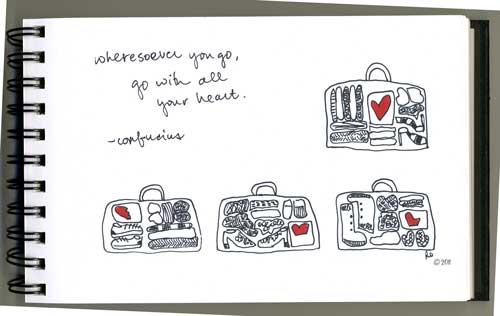 wheresoever you go,
go with all
your heart.
-confucius
RD
© 2011